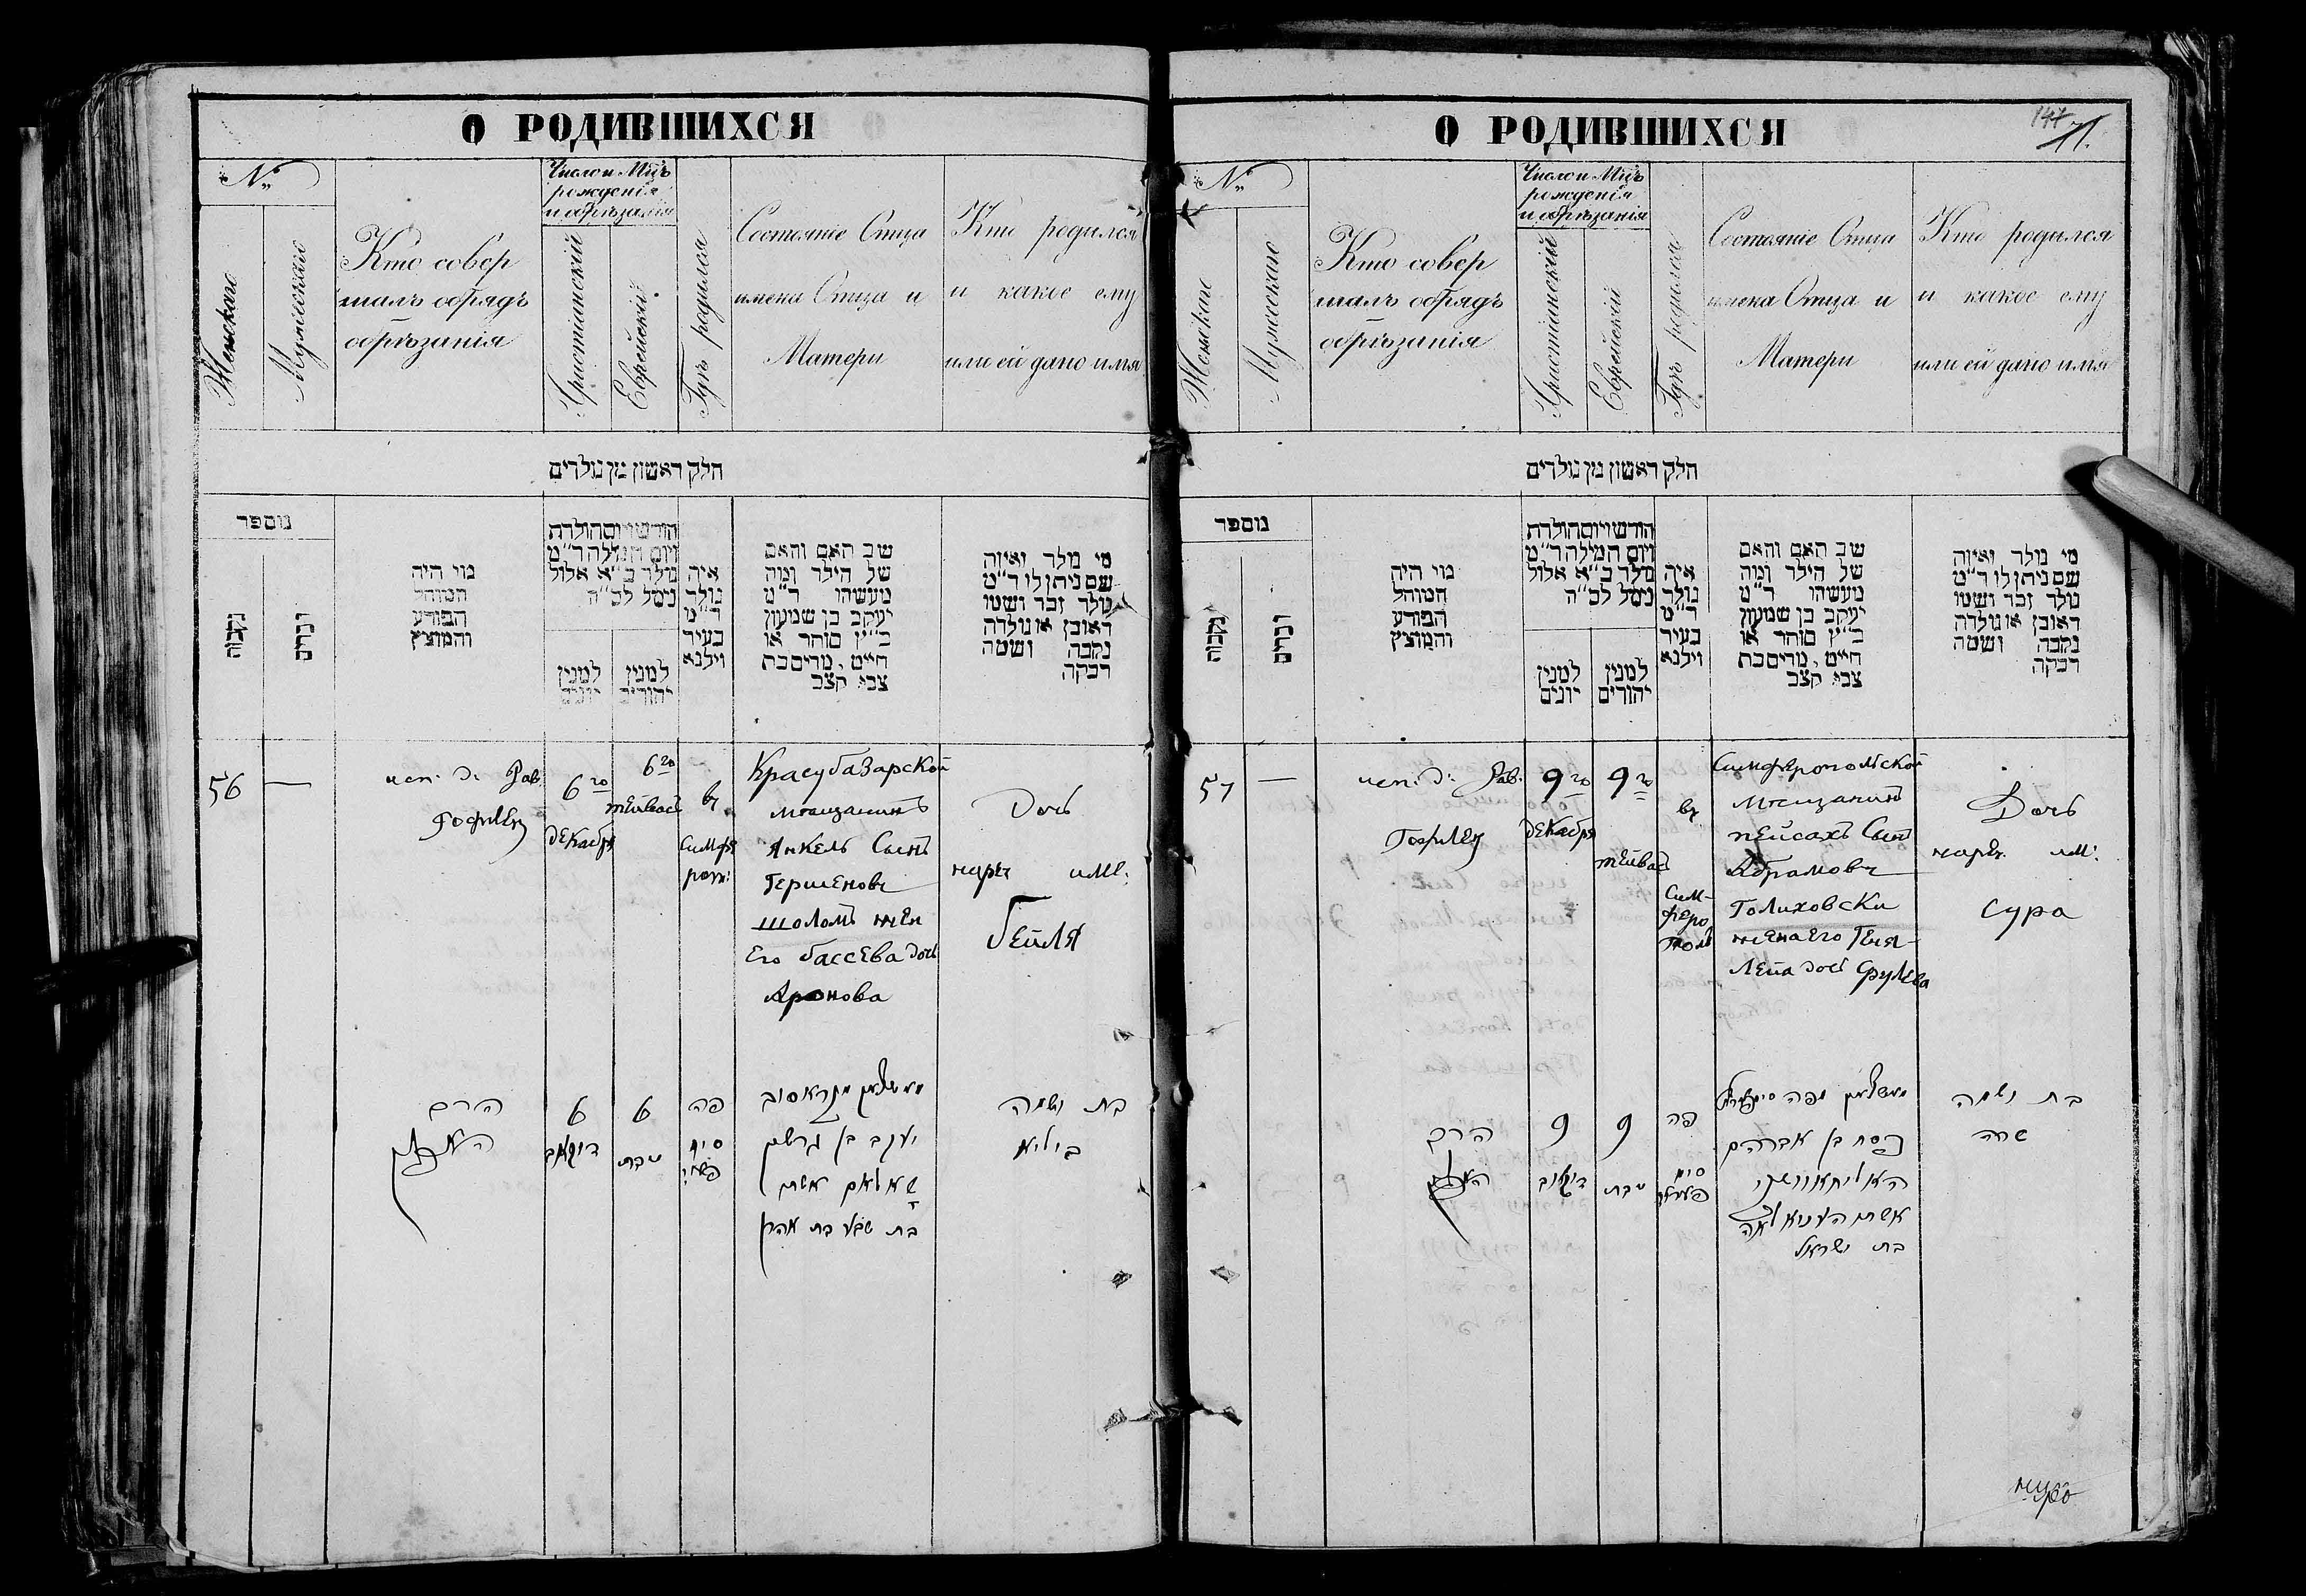 О РОДИВШИХСЯ
№
Женскаго
Мужескаго
Кто совер
шалъ обрядъ
обрѣзанія
Число и Мцъ
рожденія
и обрѣзанія
Христіанскій
Еврейскій
Гдѣ родился
Состояніе Отца
имена Отца и
Матери
Кто родился
и какое ему
или ей дано имя
חלק ראשון מן נולדים
מספר
נקבות
זכרים
מי היה
המוהל
הפורע
והמוצץ
חודש ויום הולדת
ויום המילה ד"מ
נולד כ"א אלול
נימל לכ"ה
למנין
יונים
למנין
יהודים
איה
נולד
ד"מ
בעיר
וילנא
שם האב והאם
של הילד ומה
מעשהו ד"מ
יעקב בן שמעון
כ"ץ סוחר או
חייט, מרים בת
צבי קצב
מי נולד ואיזה
שם ניתן לו ד"מ
נולד זכר ושמו
ראובן או נולדה
נקבה ושמה
רבקה
56
—
исп. д. Рав.
6го
декабря
6го
тейвас
въ
Симфе
Красубазарской
мещанинъ
Янкель Сынъ
Гершеновъ
Шоломъ жен
Его Бассева дочь
Аронова
Дочь
нареч име:
Бейля
הרב
6
6
טבת
פה
סימ
יעקב בן גרשם
שאלאם אשתו
בת שבע בת אהרן
בת ושמה
ביליא
О РОДИВШИХСЯ
147
71.
№
Женскаго
Мужескаго
Кто совер
шалъ обрядъ
обрѣзанія
Число и Мцъ
рожденія
и обрѣзанія
Христіанскій
Еврейскій
Гдѣ родился
Состояніе Отца
имена Отца и
Матери
Кто родился
и какое ему
или ей дано имя
חלק ראשון מן נולדים
מספר
נקבות
זכרים
מי היה
המוהל
הפורע
והמוצץ
חודש ויום הולדת
ויום המילה ד"מ
נולד כ"א אלול
נימל לכ"ה
למנין
יונים
למנין
יהודים
איה
נולד
ד"מ
בעיר
וילנא
שם האב והאם
של הילד ומה
מעשהו ד"מ
יעקב בן שמעון
כ"ץ סוחר או
חייט, מרים בת
צבי קצב
מי נולד ואיזה
שם ניתן לו ד"מ
נולד זכר ושמו
ראובן או נולדה
נקבה ושמה
רבקה
57
—
исп. д. Рав.
9го
декабря
9го
тейвас
въ
Сим-
феро
поль
Симферопольской
мещанинъ
пейсахъ Сынъ
Абрамовъ
Голиховски
жена его Геня-
Лея дочь Срулева
Дочь
нареч. им:
Сура
הרב
9
9
טבת
פה
סימ
פסח בן אברהם
בת ישראל
בת ושמה
שרה